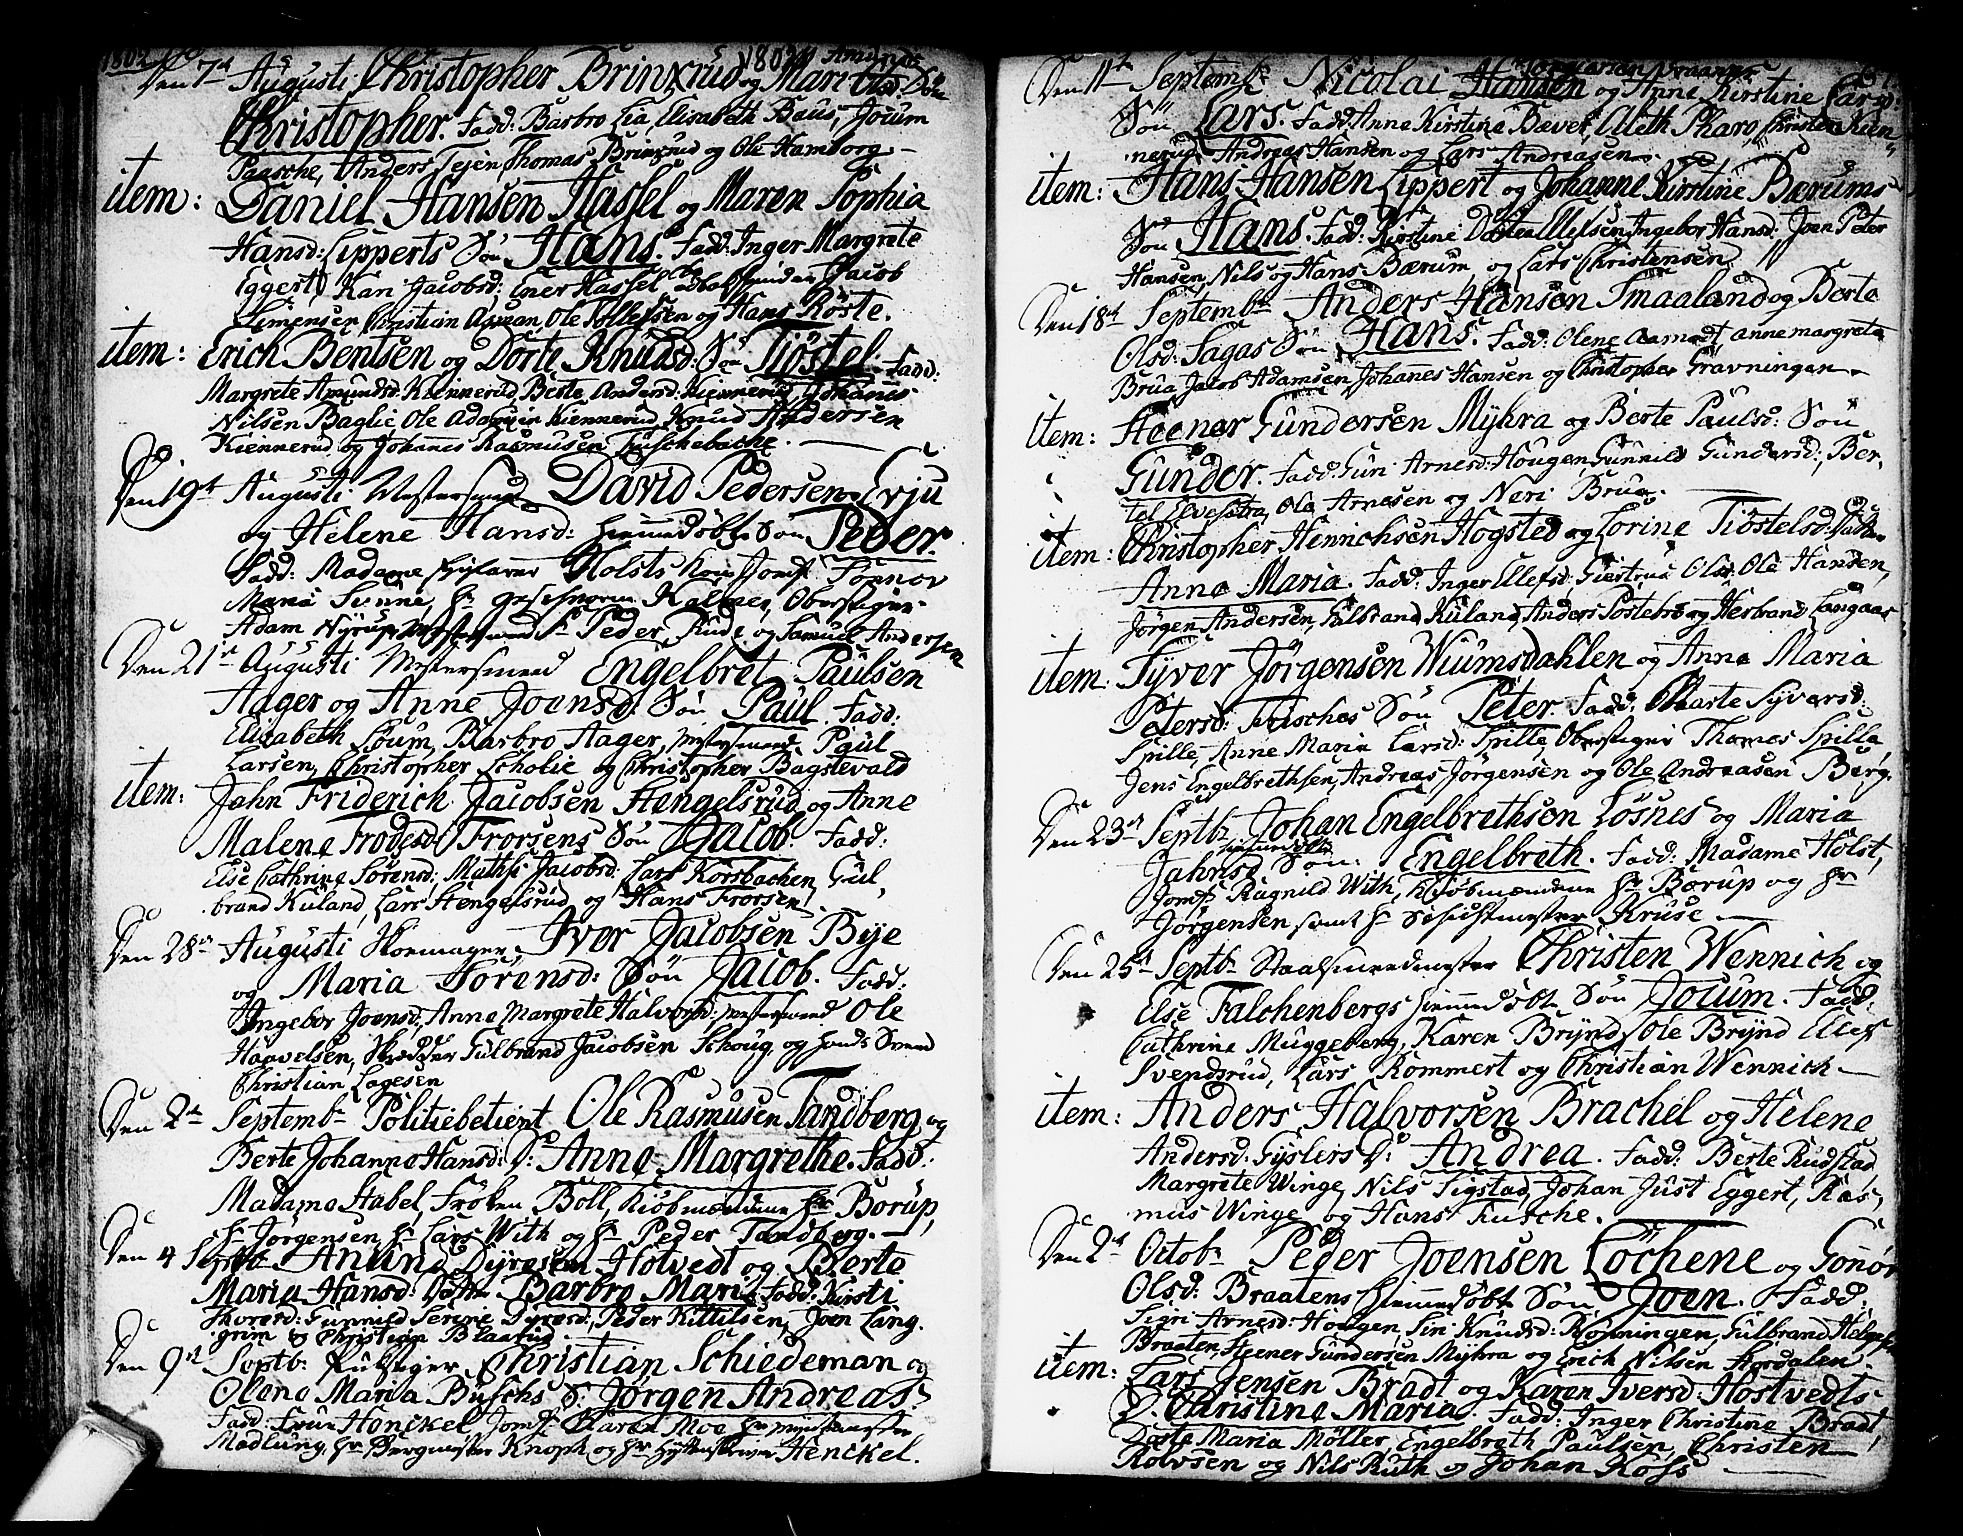 1802
Den 7de Augusti Christopher Brinxrud og Mari Olsd: Sön
Christopher. Fadd: Barbro Lia, Elisabeth Baus, Jorum
Paasche, Anders Tejen, Thomas Brinxrud og Ole Hamborg.
item: Daniel Hansen Hassel og Maren Sophia
Hansd: Lipperts Sön Hans. Fadd: Inger Margrete
Eggert, Kari Jacobsd: Ener Hassel Jacob
Clemensen, Christian Asman, Ole Tollefsen og Hans Röste.
item: Erich Bentsen og Dorte Knudsd: Sön Tiöstel. Fadd:
Margrete Amundsd: Kiennerud, Berte Andersd: Kiennerud, Johanes
Nilsen Baglie, Ole Kiennerud, Knud Andersen
Kiennerud og Johannes Rasmussen Tuschebache.
Den 19de Augusti Mestersmed David Pedersen Evju
og Helene Hansd: hiemmedöbt Sön Peder.
Fadd: Madame Holsts Jomf:
Maria Sunne, Hr Kalmer, Oberstiger
Adam Nyrup, Hr Peder Rude og Samuel Andersen
Den 21de Augusti Mestersmed Engelbret Paulsen
Aager og Anne Joensd: Sön Paul. Fadd:
Elisabeth Soum, Barbro Aager, Mestersmed Paul
Larsen, Christopher Scholie og Christopher Bagstevald
item: Jahn Friderich Jacobsen Stengelsrud og Anne
Malena Frodesd: Frorsens Sön Jacob. Fadd:
Else Cathrine Sörensd: Mathis Jacobsd: Lars Korsbachen, Gul,
brand Kuland, Lars Stengelsrud og Hans Frorsen.
Den 28de Augusti Skoemager Iver Jacobsen Bye
og Maria Sorensd: Sön Jacob. Fadd:
Ingebor Joensd: Anne Margrete Halvorsd: Mestersmed Ole
Haavelsen, Gulbrand Jacobsen Schoug, og Svend
Christian Lagesen
Den 2de Septembr Politiebetient Ole Rasmusen Sandberg og
Berte Johanne Hansd: D: Anne Margrethe. Fadd:
Madame Stabel, Fröken Boll, Kiöbmændene Hr Borup,
Hr Jörgensen, Hr Lars With og Hr Peder Sandberg.
Den 4 Septbr Anund Dyresen Hotvedt og Berte
Maria Hansd: Datter Barbro Mari Fadd: Kirsti
Thorsd: Gunnild Serine Dyresd:, Peder Kittilsen, Joen Lang.
grim og Christian Blaarud.
Den 9de Septb: Puksteiger Christian Schiedeman og
Olena Maria Buschs S: Jörgen Andreas.
Fadd: Frue Henckel, Jomf: Karen Moe Hr
Madlung, Hr Bergmester Knoph og Hr Hyttenskriver Henckel.
Den 11te Septembr Nicolai Hansen og Anne Kirstine Larsd:
Sön Lars. Fadd: Anne Kirstine Bæver, Aleth Pharo, Christen Kien,
nerup, Andreas Hansen og Lars Andreasen.
item: Hans Hansen Lippert og Johanne Kirstine Bærums
Sön Hans. Fadd: Kirstine Dortea Ellefsen, Ingebor Hansd: Joen Peter
Hansen, Nils og Hans Bærum, og Lars Christensen
Den 18de Septembr Anders Hansen Smaaland og Berte
Olsd: Sagas Sön Hans. Fadd: Olene Aamodt, Anne Margrete
Brua, Jacob Adamsen, Johannes Hansen og Christopher Gravningen.
item: Steener Gundersen Myhra og Berte Paulsd: Sön
Gunder. Fadd: Guri Arnesd: Hougen, Gunnild Gundersd: Ber,
tel Elvesetra, Ole Arnesen og Neri Brua.
item: Christopher Henrichsen Hogsted og Lorine Tiöstelsd: Datter
Anne Maria. Fadd: Inger Ellefsd: Giertrud Olsd: Ole Hansen,
Jörgen Andersen, Gulbrand Kuland, Anders Posteboe og Herbrand Langaas
item: Syver Jörgensen Wiumsdahlen og Anne Maria
Petersd: Tusches Sön Peter. Fadd: Marte Syversd:
Spille, Anne Maria Larsd: Spille, Oberstiger Thomes Spille,
Jens Engelbrethsen, Andreas Jörgensen og Ole Andreasen Berg.
Den 23de Septbr Johan Engelbrethsen Losnes og Maria
Jahnsd: Sön: Engelbreth. Fadd: Madame Holst,
Jomf: Ragnild With, Kiöbmændene Hr Borup og Hr
Jörgensen samt Hr Kruse
Den 25de Septbr Staalsmedmester Christen Wennich og
Else Falchenbergs hiemmedöbt Sön Jorum. Fadd:
Cathrine Muggeberg, Karen Brynd, Ole Brynd Ellef
Svendsrud, Lars Kommert og Christian Wennich.
item: Anders Halvorsen Brachel og Helene
Andersd: Gyslers D: Andrea. Fadd: Berte Rudstad
Margrete Winge, Nils Sigstad, Johan Just Eggert, Ras,
mus Winge og Hans Tusche.
Den 2de Octobr Peder Joensen Lochene og Gonör
Olsd: Braatens hiemmedöbt Sön Joen. Fadd:
Sigri Arnesd: Hougen, Siri Knudsd: Rönningen, Gulbrand Helgesen
Braaten, Steener Gundersen Myhra og Erich Nilsen Stordalen.
item: Lars Jensen Bradt og Karen Iversd: Hostvedts
D. Christine Maria. Fadd: Inger Christine Bradt,
Dorte Maria Möller, Engelbreth Paulsen, Christen
Rolvsen og Nils Ruth og Johan Koss